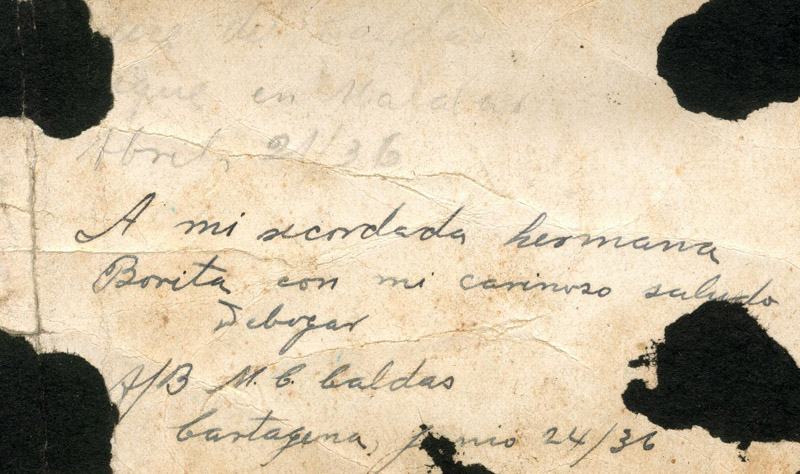 en
Abril, 21/36
A mi recordada hermana
Borita con mi carinoso saludo
Debogar
A/B M. C. Caldas
Cartagena, junio 24/36